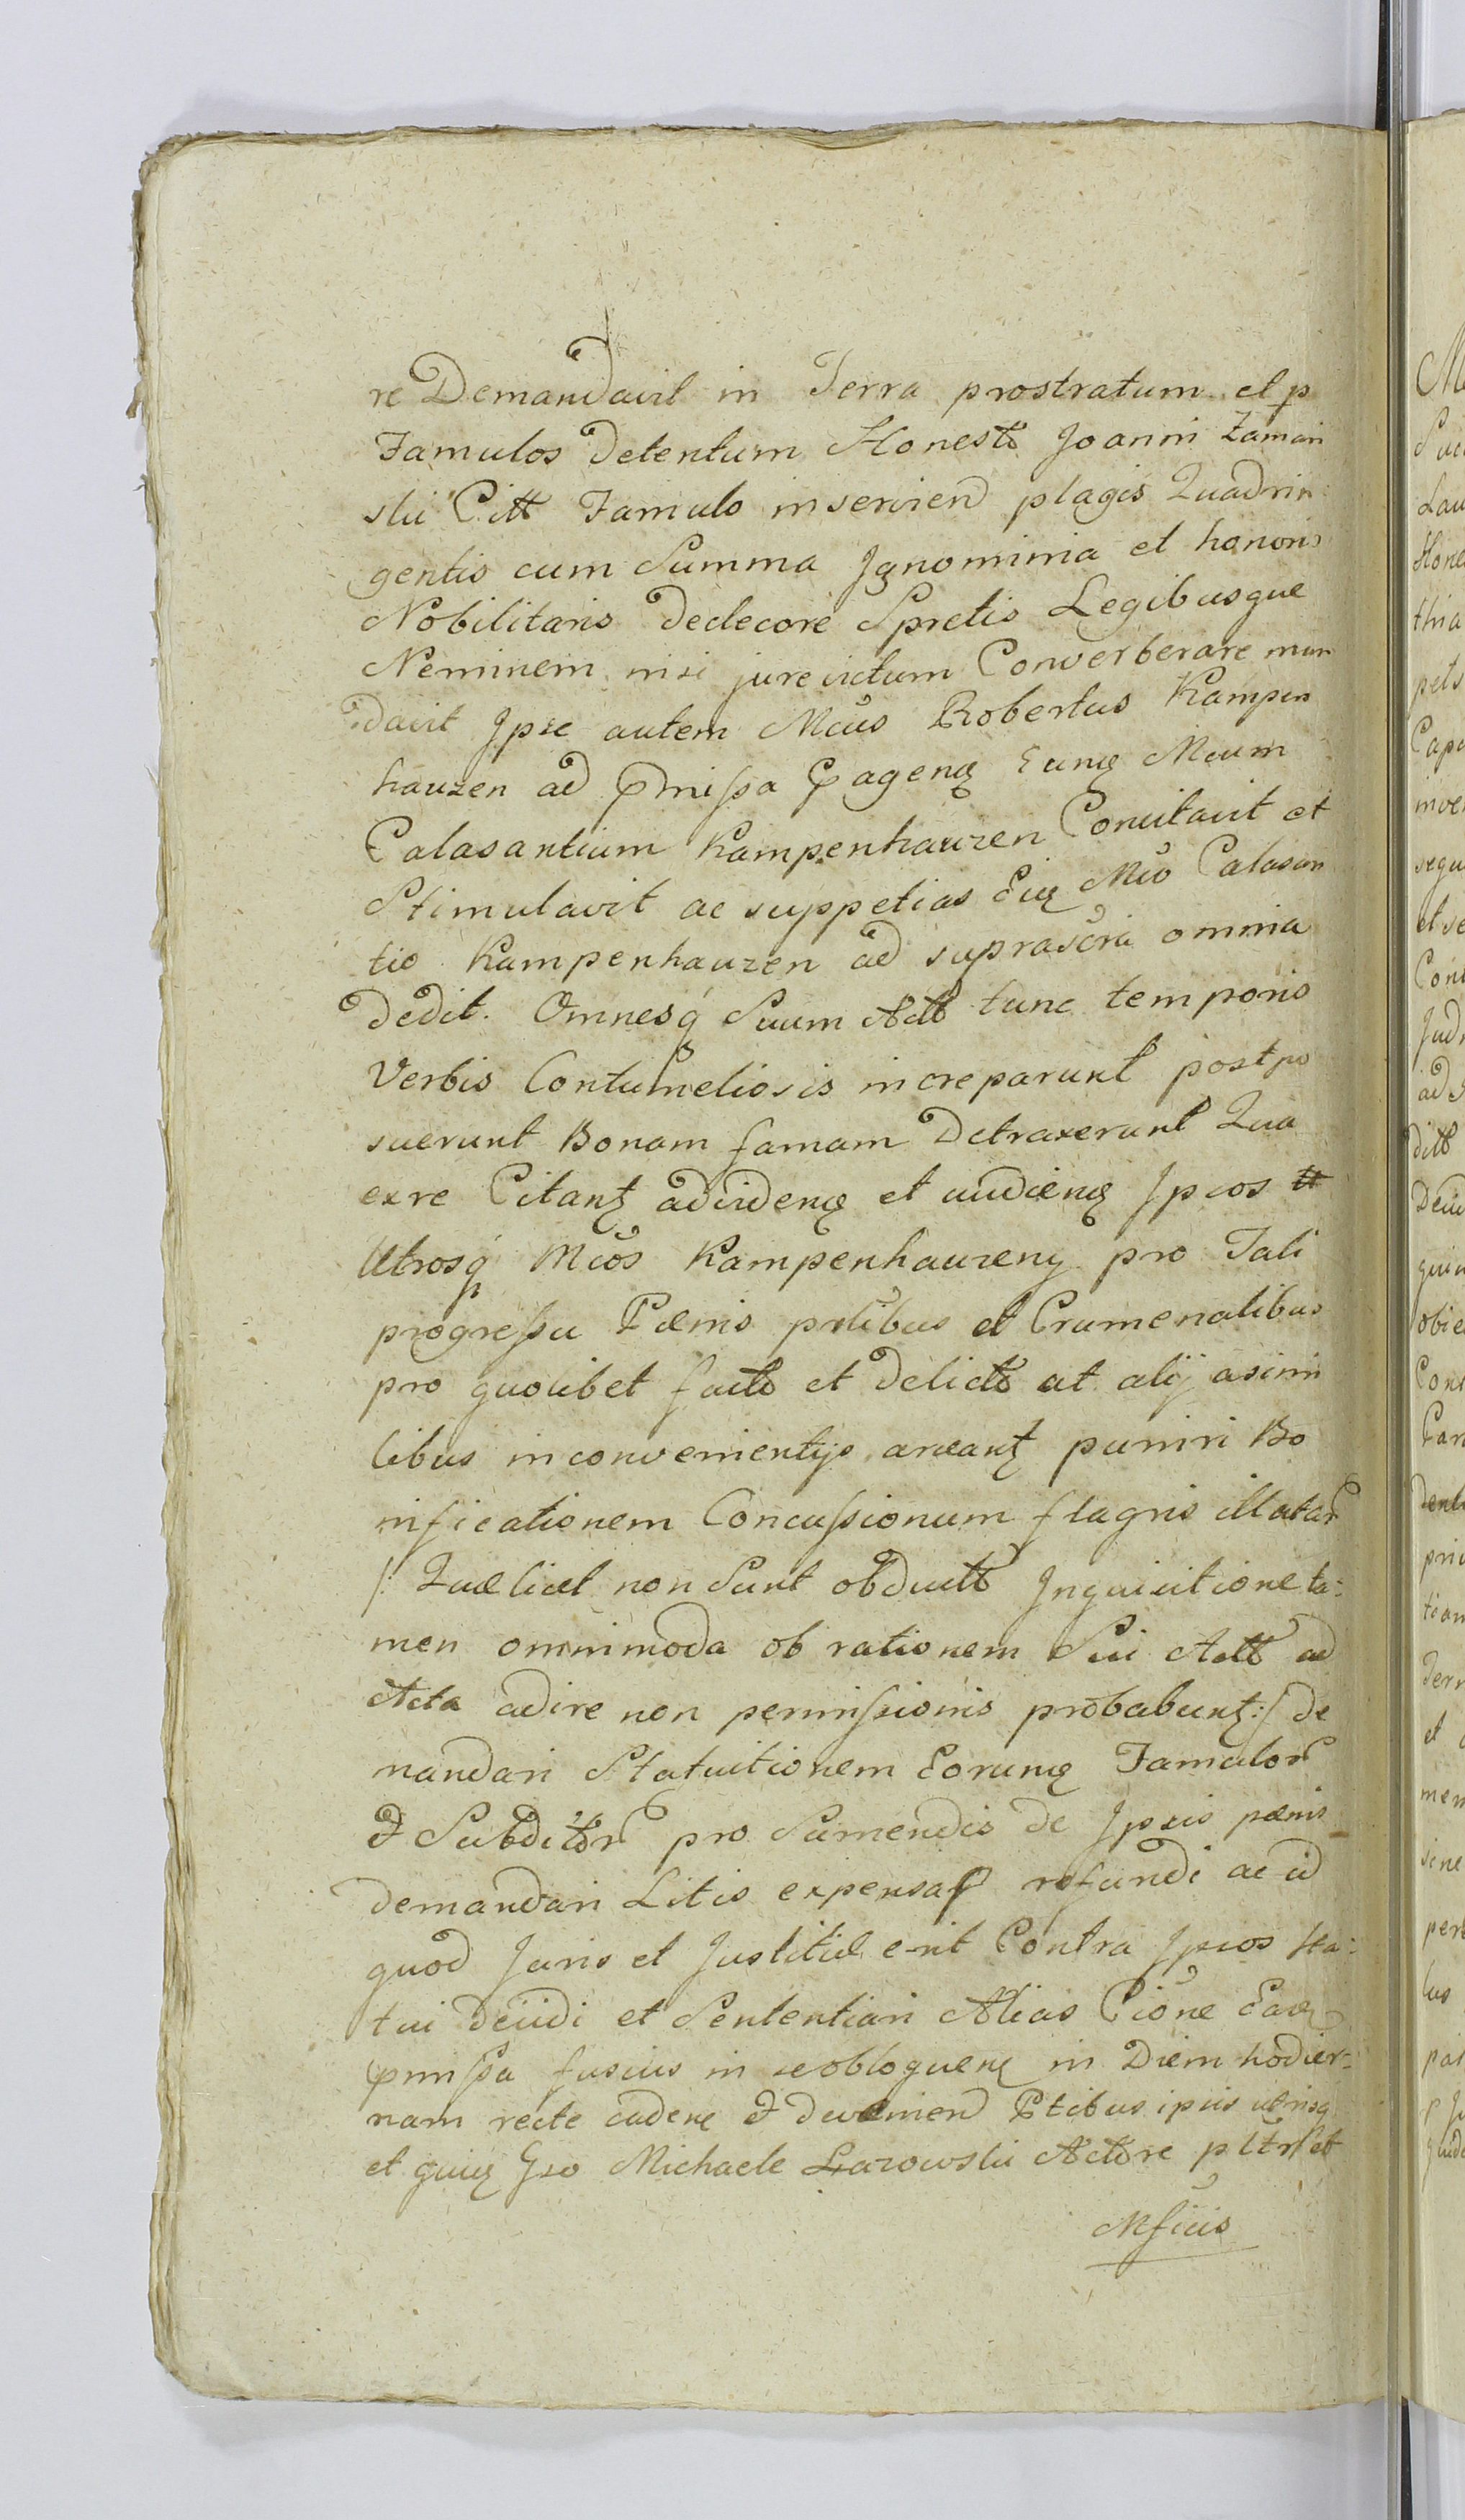 re Demandavit in Terra prostratum et p
Famulos Detentum Honesto Joanni Zamoi
ski Citt Famulo inserviend plagis Quadrin:
gentis cum Summa Jgnominia et honoris
Nobilitaris Dedecore Spretis Legibusque
Neminem nisi jurevictum Converberare man
davit Jpse autem Mcus Robertus Kampen
hauzen ad pmissa pagenq Eunq Mcum
Calasantium Kampenhauzen Concitavit et
Stimulavit ac suppetias Eiq Mco Calasan
tio Kampenhauzen ad suprascra omnia
Dedit. Omnesq Suum Actt tunc temporis
Verbis Contumeliosis increparunt postpo
suerunt Bonam famam Detraxerunt Qua
exre Citantz advidenq et audienq Jpsos
Utrosq Mcos Kampenhauzeny pro Tali
progressu Pænis pnlibus et Crumenalibus
pro quolibet facto et Delicto ut alij asimi
libus inconvenientijs arceantz puniri Bo
nificationem Concussionum flagris illatar
/: Quælicet non Sunt obducto Jnquisitione ta:
men omnimoda ob rationem Sui Actt ad
Acta adire non permissionis probabuntz :/ de
mandari Statuitionem Eorunq Famulor
et Subditor pro Sumendis de Jpsis pænis
demandari Litis expensas refundi ac id
quod Juris et Justitiæ erit Contra Jpsos sta:
tui decidi et Sententiari Alias Cione Eaq
pmissa fusius in seobloquenq in Diem hodier:
nam recte cadenq et devenienD Ptibus ipsis utrisq
et quiq Gso Michaele Lazowski Actore pltr et
Mficis